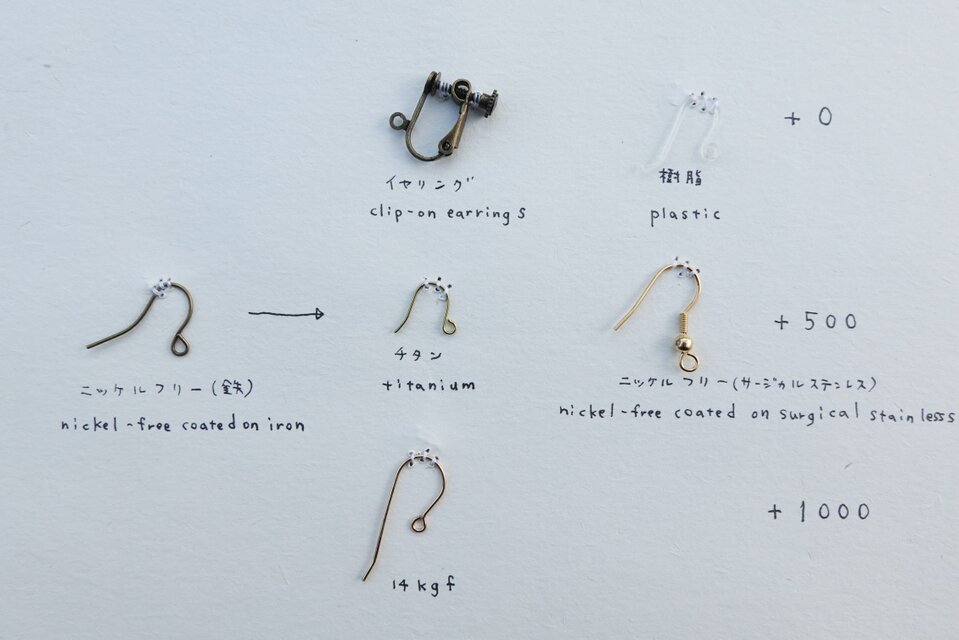 イヤリング
clip-on earrings
樹脂
plastic
+ 0
ニッケルフリー(鉄)
nickel-free coated on iron
チタン
titanium
ニッケルフリー(サージカルステンレス)
nickel-free coated on surgical stainlesss
+ 500
14kgf
+ 1000